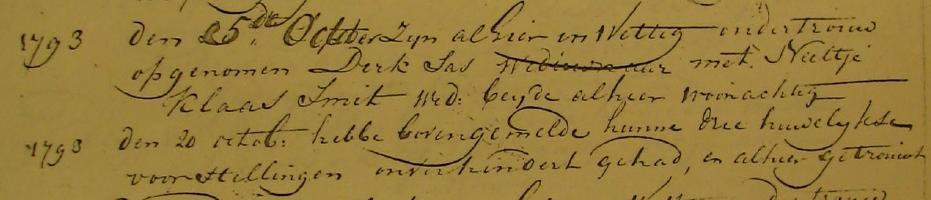 1793 den 25de Octber Zyn alhier in Wettig ondertrouw
opgenomen Derk Sas Weduwnaar met Neeltje
Klaas Smit Wed: beyde alhier woonachtig
1793 den 20 octob: hebbe bovengemelde hunne drie huwelykse
voorstellingen onverhindert gehad, en alhier getrouwt